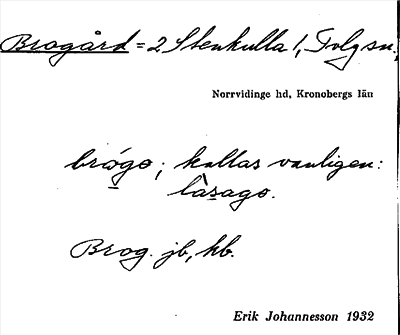 Brogård = 2 Stenkulla 1, Tolg sn.,
Norrvidinge hd, Kronobergs län
brógo; kallas vanligen:
làsago.
Brog. jb, kb.
Erik Johannesson 1932